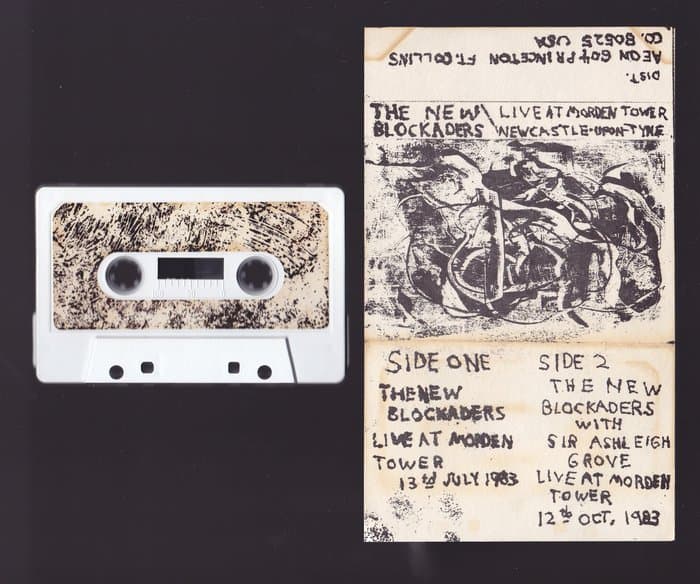 DIST.
AEON 604 PRINCETON FT. COLLINS
CO. 80525 USA
THE NEW
BLOCKADERS
LIVE AT MORDEN TOWER
NEWCASTLE-UPON-TYNE
SIDE ONE
THE NEW
BLOCKADERS
LIVE AT MORDEN
TOWER
13rd JULY 1983
SIDE 2
THE NEW
BLOCKADERS
WITH
SIR ASHLEIGH
GROVE
LIVE AT MORDEN
TOWER
12th OCT, 1983